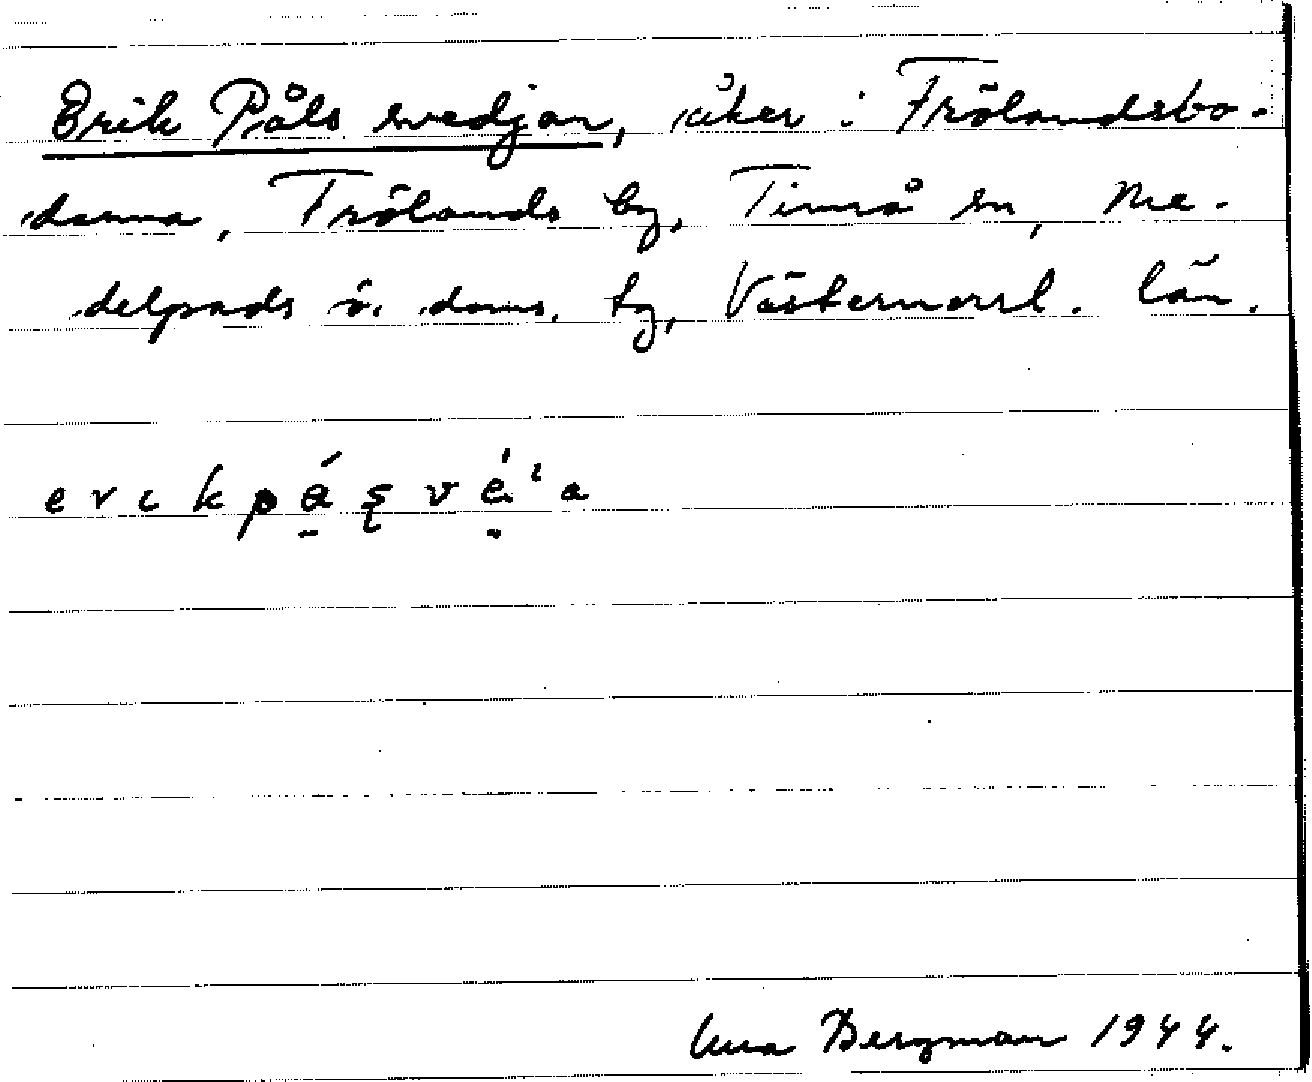 Erik Påls svedjan, åker i Frölandsbo-
darna, Frölands by, Timrå sn, Me-
delpads ö. doms. tg, Västernorrl. län.
e r ι k p á̱ ʂ v é̱ ' a
Bergman 1944.